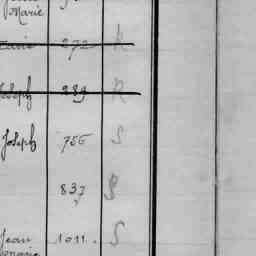 Marie
272 R
Joseph 289 R
Joseph 756 S
837 S
Jean 1011. S